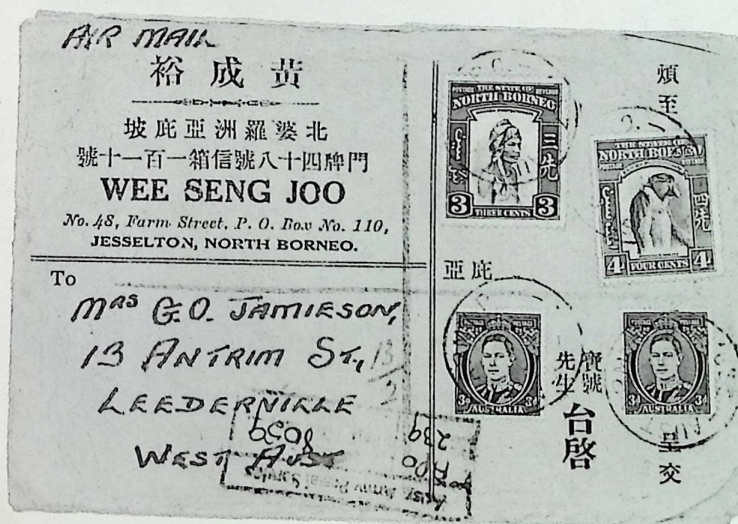 AIR MAIL
裕成黄
坡庇亞洲羅婆北
號十一百一箱信號八十四牌門
WEE SENG JOO
No. 48, Farm Street, P. O. Box No. 110,
JESSELTON, NORTH BORNEO.
To
MRS G.O. JAMIESON,
13 ANTRIM ST,
LEEDERVILLE
WEST AUST
煩至
亞庇
寶號
先生
台啓
呈交
THE STATE OF
NORTH BORNEO
三先
3 THREE CENTS 3
THE STATE OF
NORTH BORNEO
四先
4 FOUR CENTS 4
3d AUSTRALIA 3d
3d AUSTRALIA 3d
13/2
239